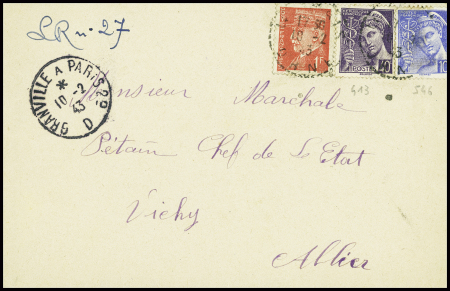 LR n° 27
GRANVILLE A PARIS
10-2
43
D
POSTES
413 546
Monsieur Marchale
Pétain Chef de l Etat
Vichy
Allier